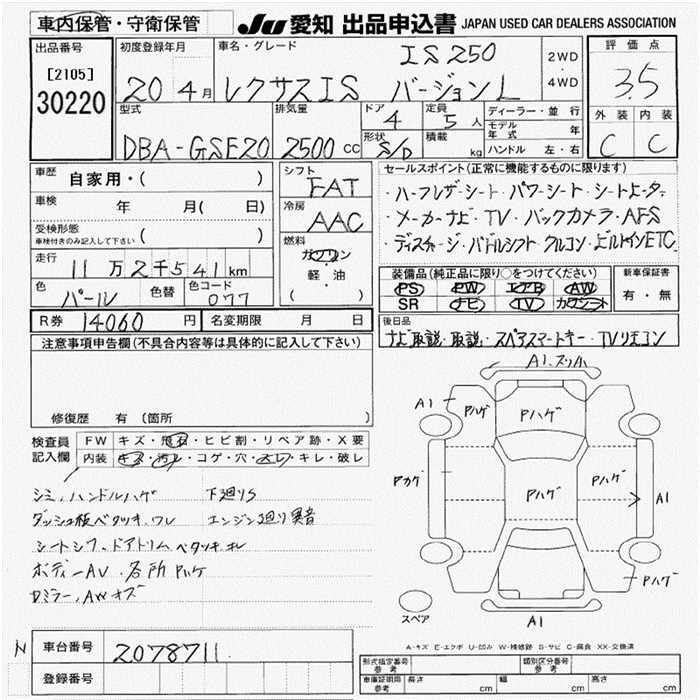 車内保管・守衛保管
JU 愛知 出品申込書 JAPAN USED CAR DEALERS ASSOCIATION
出品番号 [2105] 30220
初度登録年月 20年 4月
車名・グレード IS250 レクサスIS バージョンL
2WD・4WD
評価点 3.5
外装 C 内装 C
型式 DBA-GSE20
排気量 2500cc
ドア 4
形状 S/D
定員 5人
積載 kg
ディーラー・並行
モデル年式 年
ハンドル 左・右
車歴 自家用・( )
車検 年 月( 日)
受検形態 車検付きのみ記入して下さい ( )
走行 11万2千541km
色 パール 色替 色コード 077
シフト FAT
冷房 AAC
燃料 ガソリン 軽・油 ( )
セールスポイント(正常に機能するものに限ります)
・ハーフレザーシート・パワーシート・シートヒーター
・メーカーナビ・TV・バックカメラ・AFS
・ディスチャージ・パドルシフト クルコン・ビルトインETC
装備品(純正品に限り○をつけてください)
PS PW エアB AW
SR ナビ TV カワシート
新車保証書 有・無
R券 14060円 名変期限 月 日
後日品 ナビ取説・取説・スペアスマートキー・TVリモコン
注意事項申告欄(不具合内容等は具体的に記入して下さい)
修復歴 有 (箇所
検査員記入欄
FW キズ・飛石・ヒビ割・リペア跡・X要
内装 キズ・汚レ・コゲ・穴・スレ・キレ・破レ
シミ、ハンドルハゲ 下廻りS
ダッシュ板ベタツキ、ワレ エンジン廻り異音
シートシワ、ドアトリムベタツキ、キレ
ボディーAV、各所Pハゲ
Dミラー、AWキズ
A1、スリキズ
A1 Pハゲ Pハゲ
Pハゲ Pハゲ Pハゲ A1
Pハゲ
スペア A1
A-キズ E-エクボ U-凹み W-補修跡 S-サビ C-腐食 XX-交換済
車台番号 2078711
登録番号
形式指定番号 参考 類別区分番号 参考
車庫証明用 参考 長さ cm 幅 cm 高さ cm